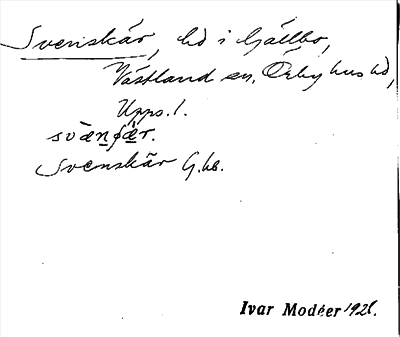 Svenskär, hd i Gällbo,
Västland sn, Örbyhus hd,
Upps. l.
svänʃä̀r.
Svenskär G.ks.
Ivar Modéer 1928.